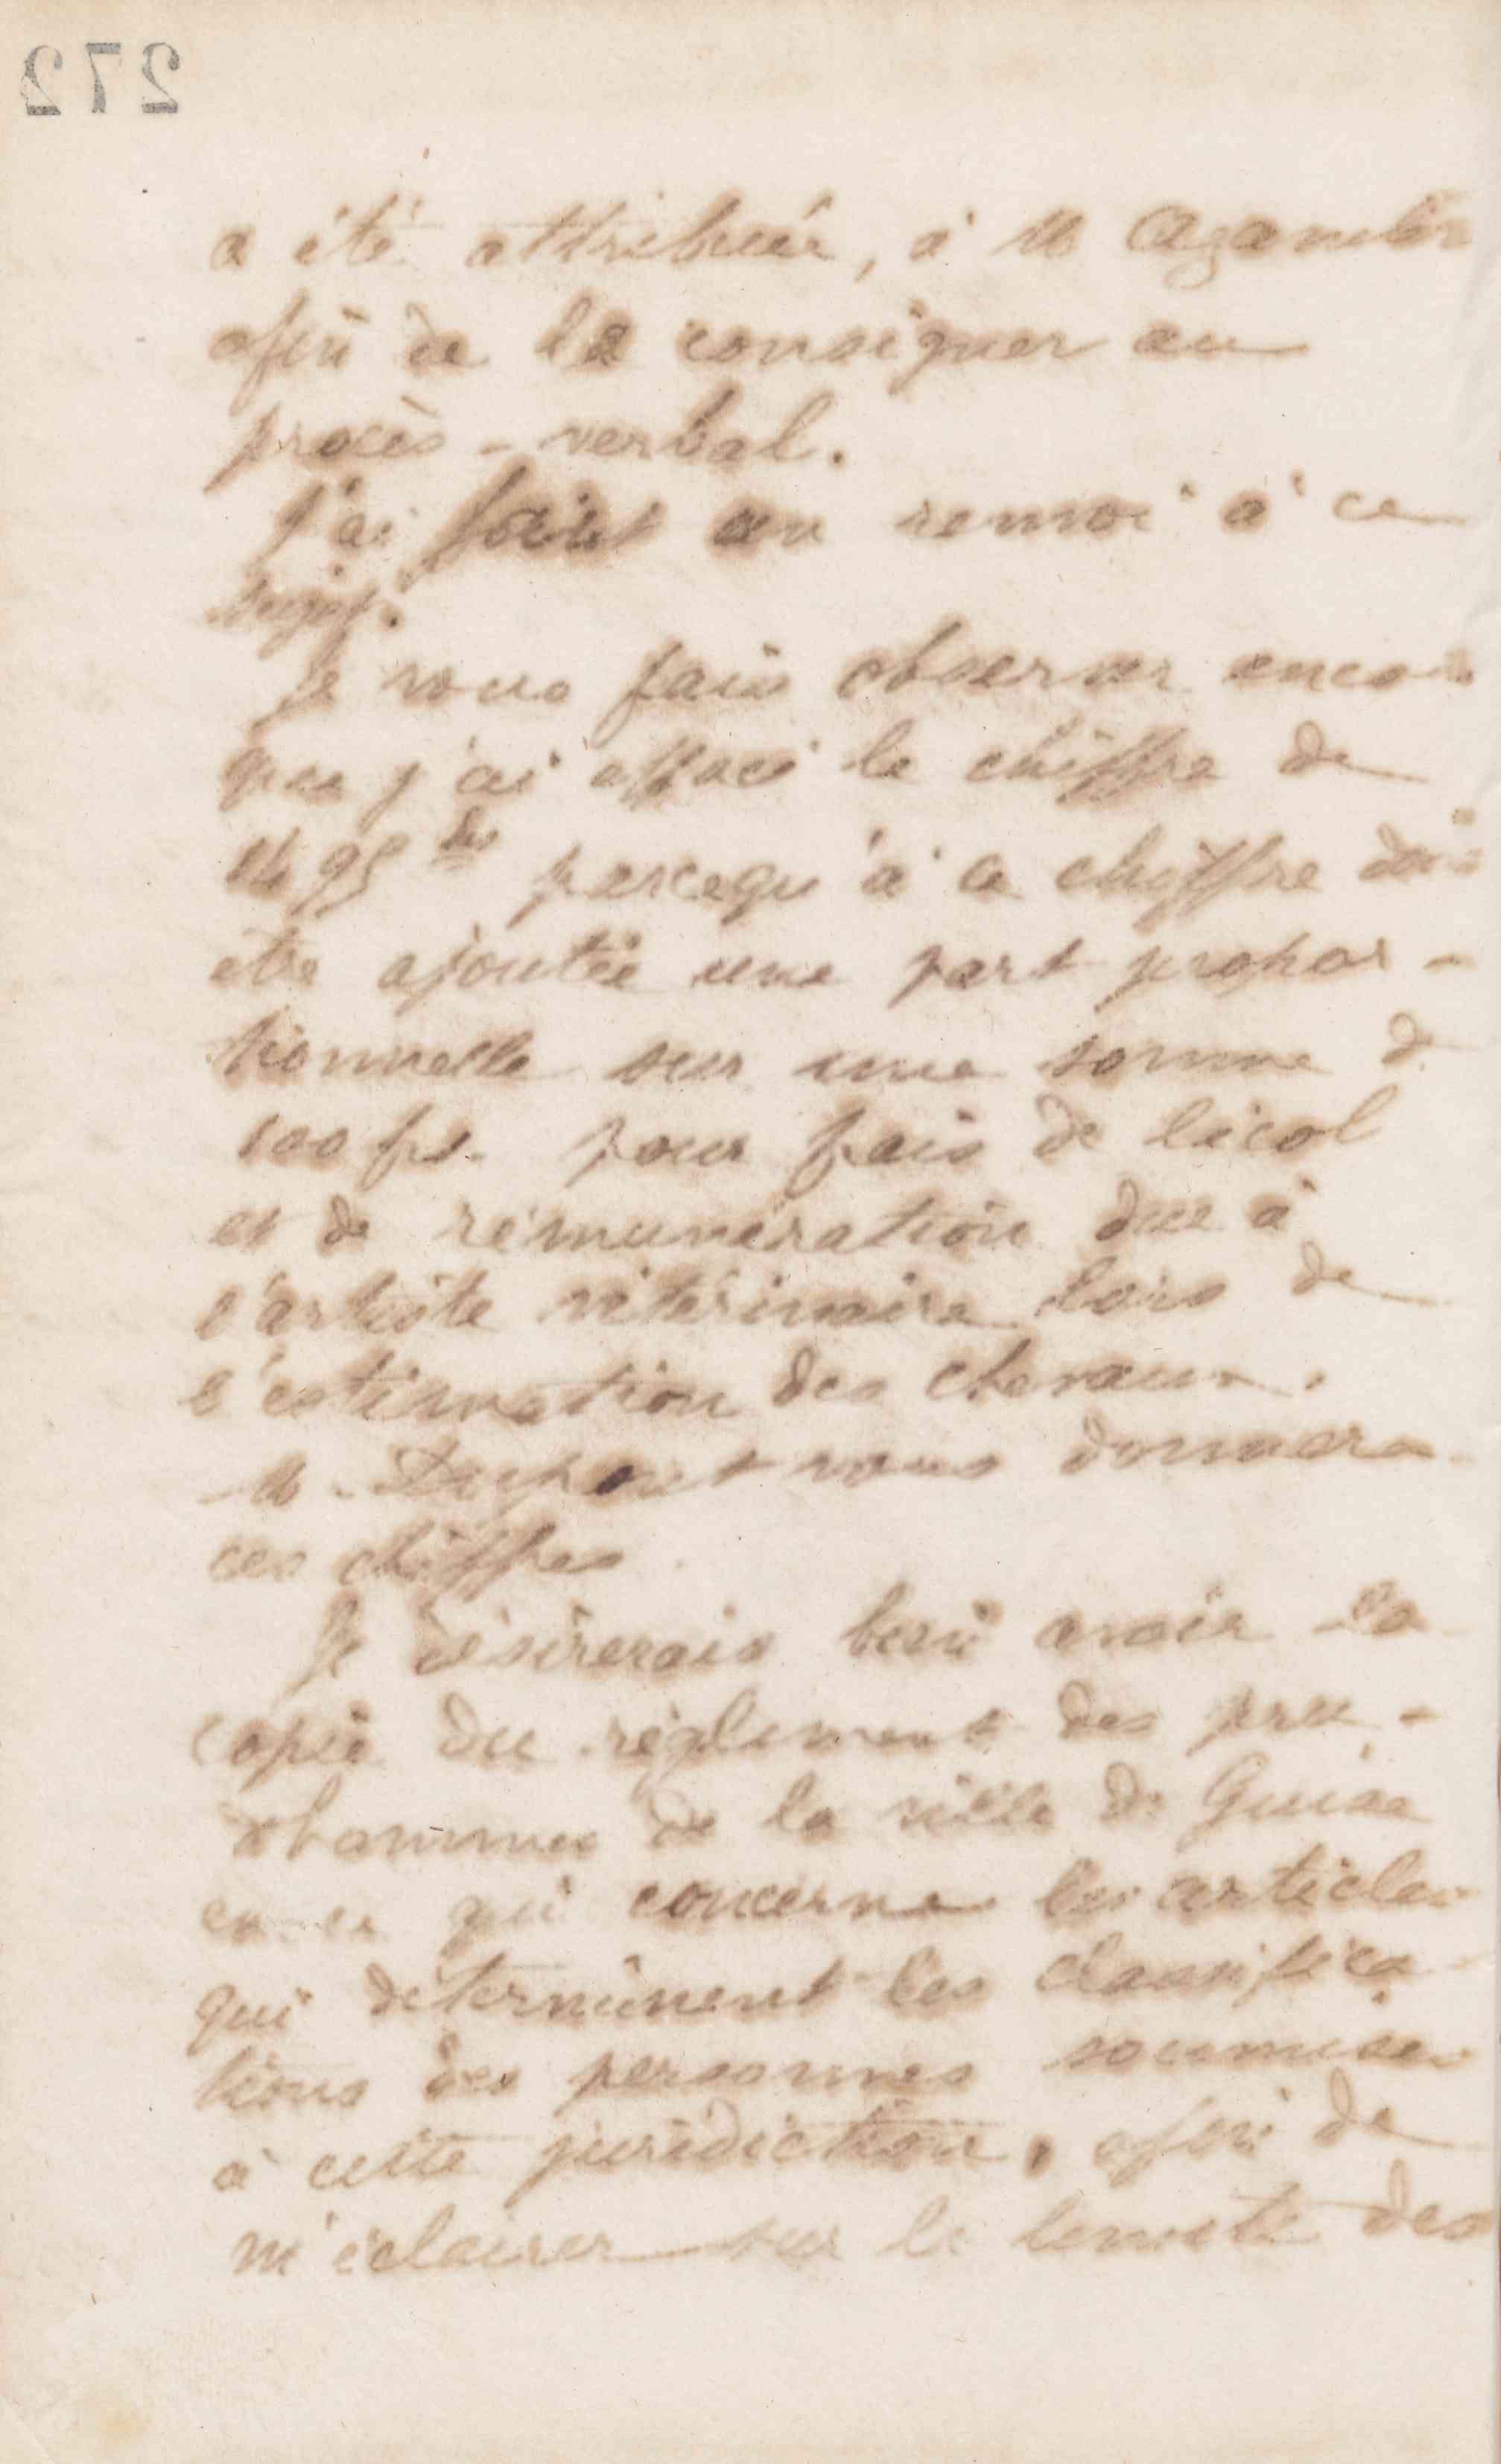 272
a été attribuée, à M
afin de la consigner au
procès-verbal.
J'ai fait un renvoi à ce
sujet.
Je vous fais observer encore
que j'ai effacé le chiffre de
parcequ'à ce chiffre doit
etre ajoutée une part propor-
tionnelle sur une somme de
100 frs. pour frais de licol
et de rémunération due à
l'artiste vétérinaire lors de
l'estimation des chevaux.
M. Dupont vous donnera
ces chiffres
Je désirerais bien avoir la
copie du règlement des pru-
d'hommes de la ville de Guise
en ce qui concerne les articles
qui déterminent les classifica-
tions des personnes soumises
à cette juridiction, afin de
m'éclairer sur la des